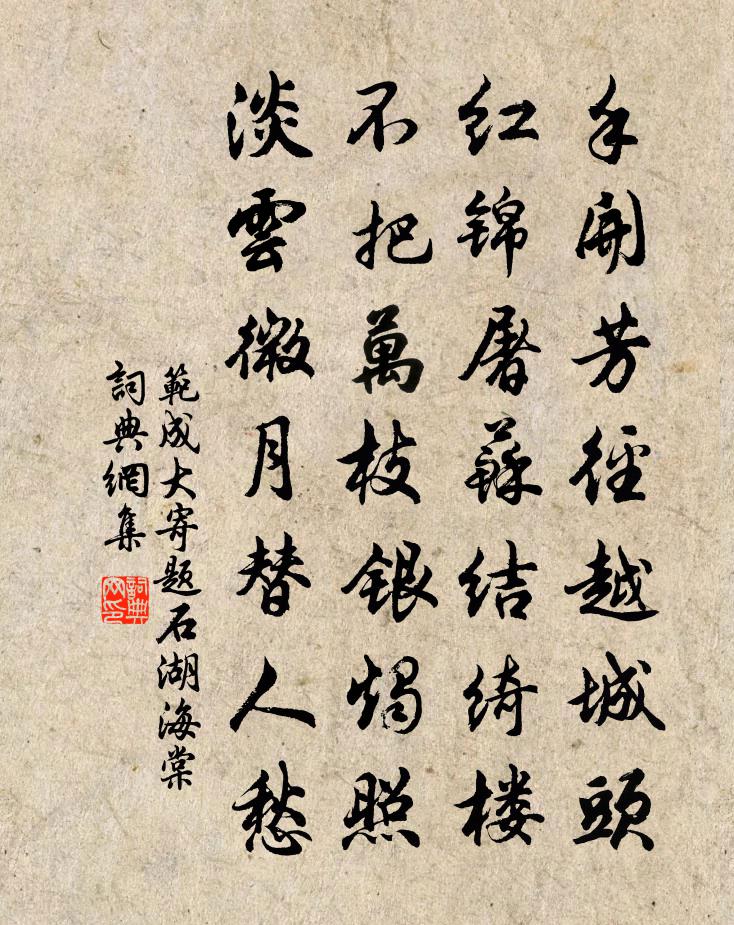 手開芳徑越城頭
紅錦屠蘇結綺楼
不把萬枝銀燭照
淡雲微月替人愁
範成大寄題石湖海棠
詞典網集
詞典网印